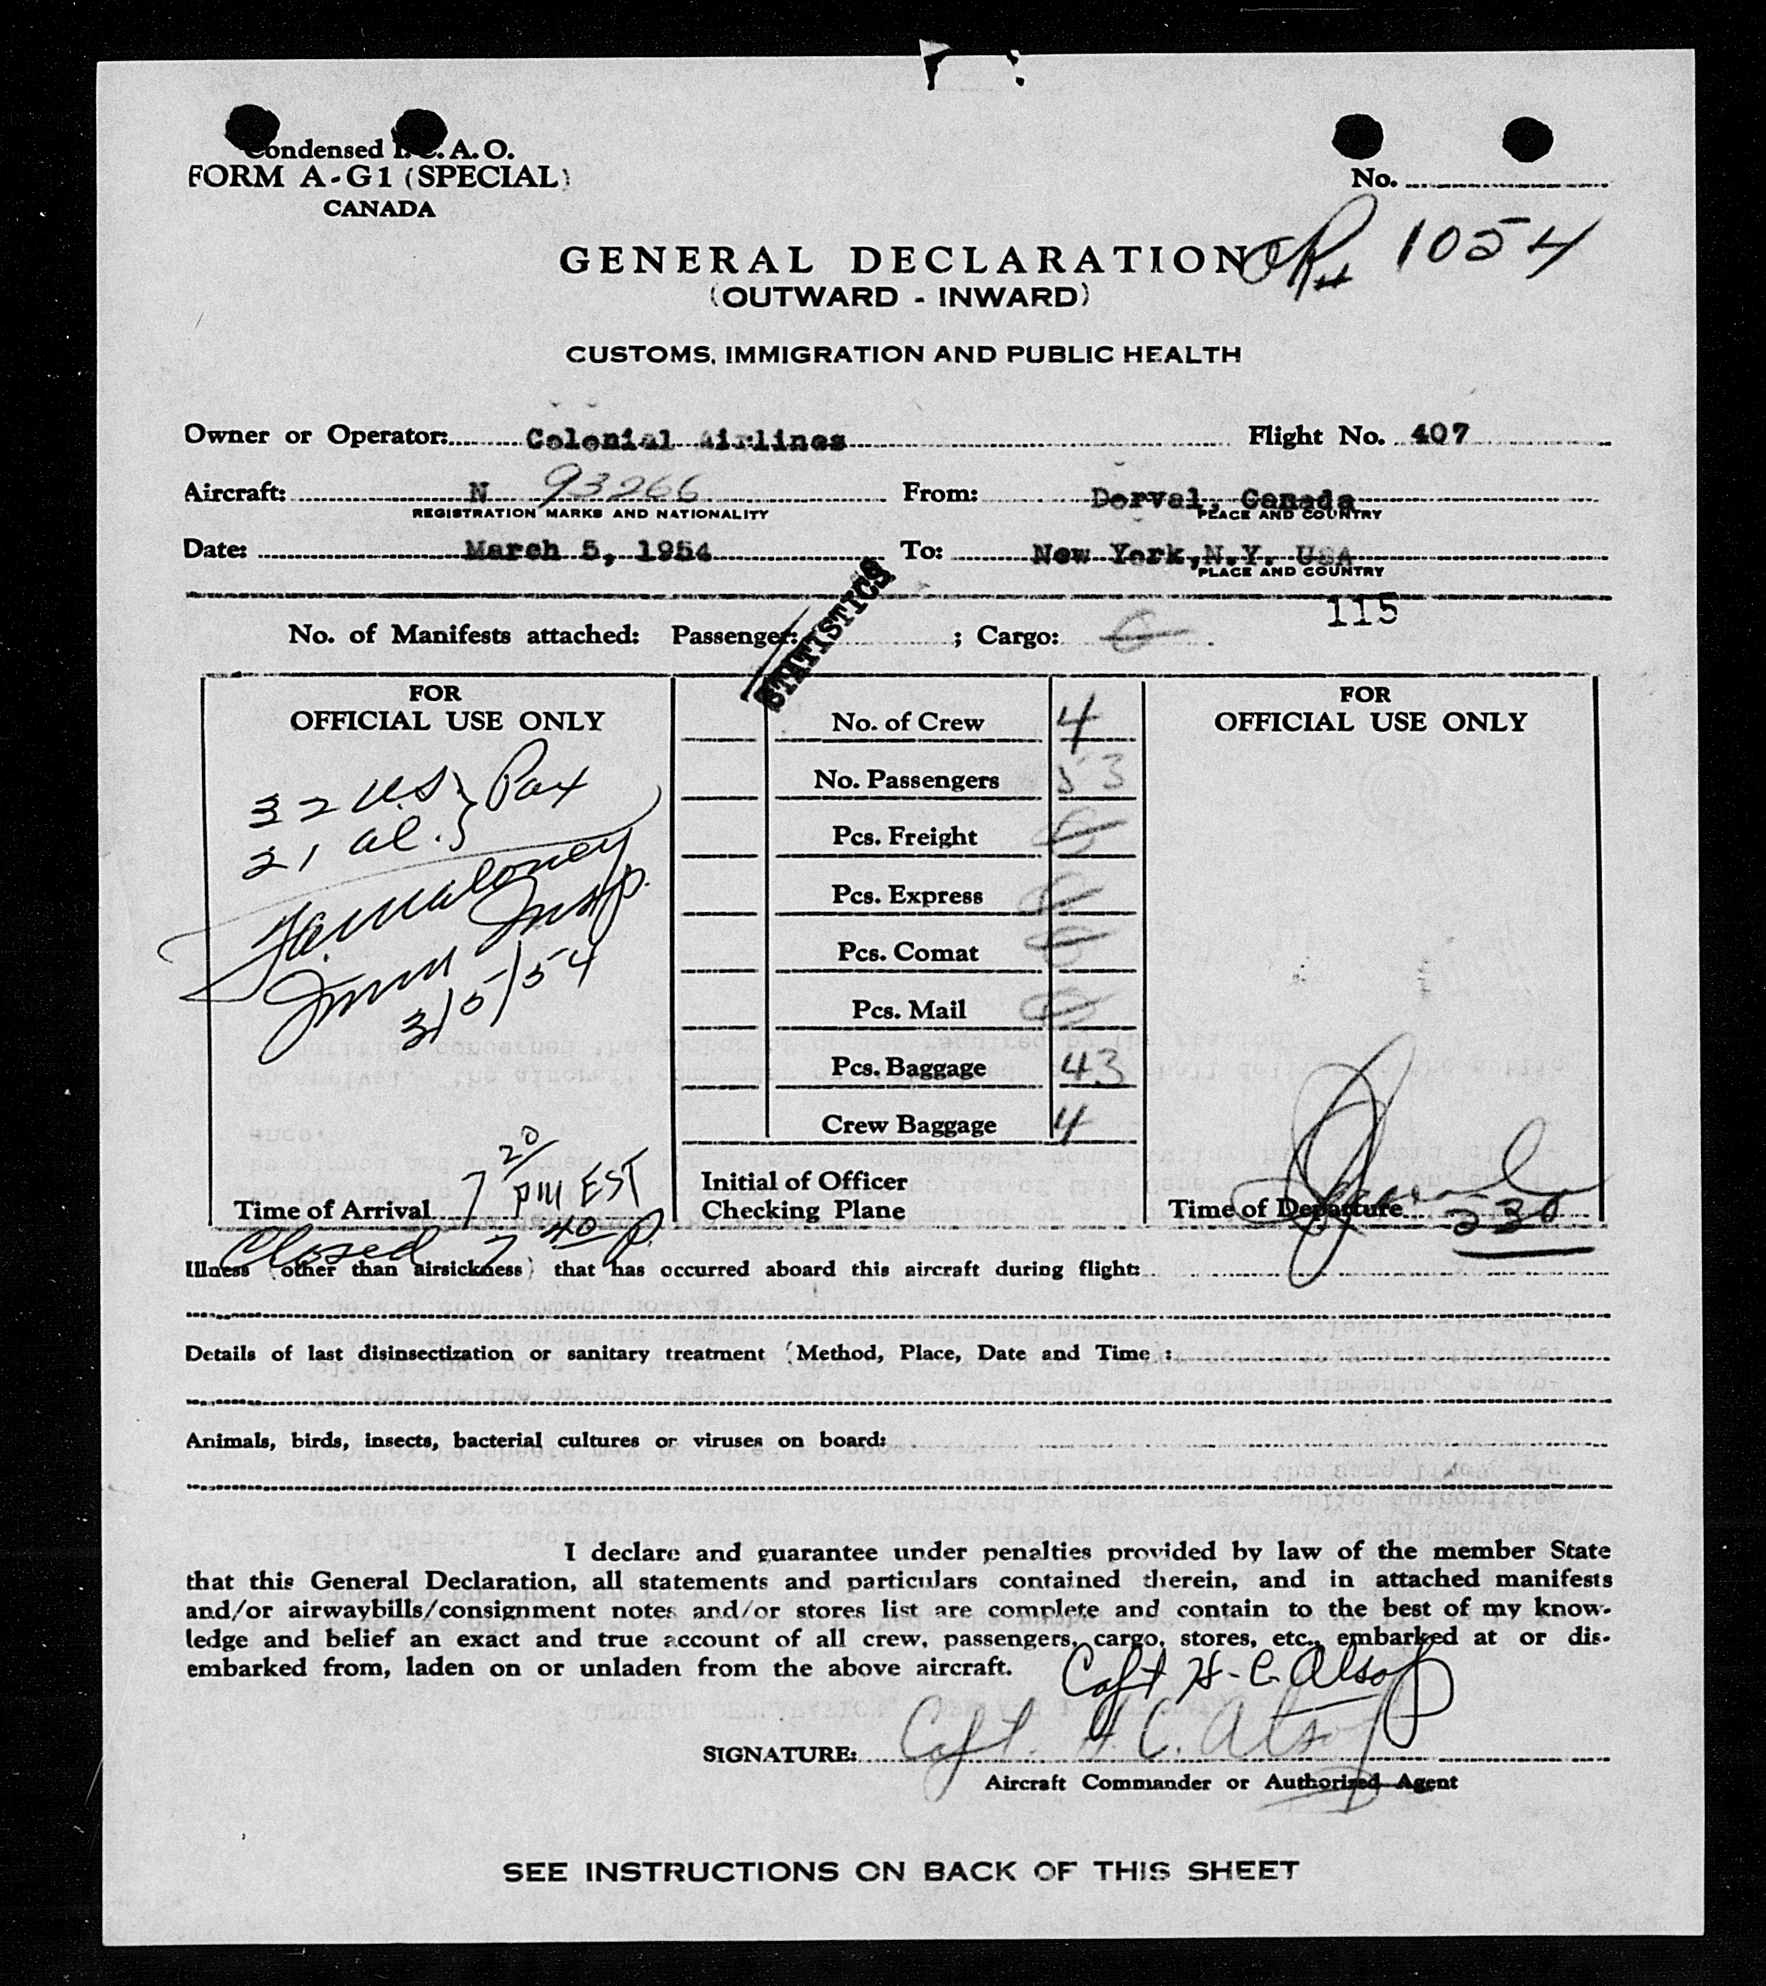 Condensed I.C.A.O.
FORM A-G1 (SPECIAL)
CANADA
No.
1054
GENERAL DECLARATION
(OUTWARD - INWARD)
CUSTOMS, IMMIGRATION AND PUBLIC HEALTH
Owner or Operator: Colonial Airlines Flight No. 407
Aircraft: N 93266 From: Dorval, Canada
REGISTRATION MARKS AND NATIONALITY PLACE AND COUNTRY
Date: March 5, 1954 To: New York, N.Y. USA
PLACE AND COUNTRY
115
No. of Manifests attached: Passenger: ; Cargo:
STATISTICS
FOR
OFFICIAL USE ONLY
32 U.S. } Pax
21 al.
Maloney
Imm Insp.
3/5/54
Time of Arrival 7 20 PM EST
Closed 7 40 P.
No. of Crew 4
No. Passengers 53
Pcs. Freight
Pcs. Express
Pcs. Comat
Pcs. Mail
Pcs. Baggage 43
Crew Baggage 4
Initial of Officer
Checking Plane
FOR
OFFICIAL USE ONLY
Time of Departure 530
Illness (other than airsickness) that has occurred aboard this aircraft during flight:
Details of last disinsectization or sanitary treatment (Method, Place, Date and Time):
Animals, birds, insects, bacterial cultures or viruses on board:
I declare and guarantee under penalties provided by law of the member State
that this General Declaration, all statements and particulars contained therein, and in attached manifests
and/or airwaybills/consignment notes and/or stores list are complete and contain to the best of my know-
ledge and belief an exact and true account of all crew, passengers, cargo, stores, etc., embarked at or dis-
embarked from, laden on or unladen from the above aircraft.
Capt H-C. Alsop
SIGNATURE: Capt. H. C. Alsop
Aircraft Commander or Authorized Agent
SEE INSTRUCTIONS ON BACK OF THIS SHEET